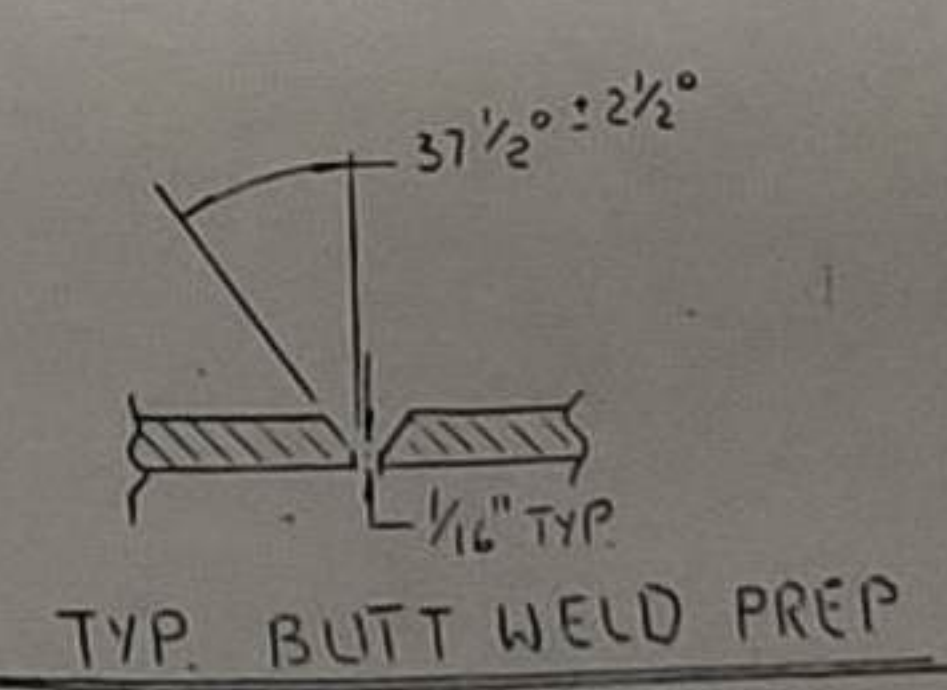 37 1/2° ± 2 1/2°
1/16" TYP.
TYP. BUTT WELD PREP